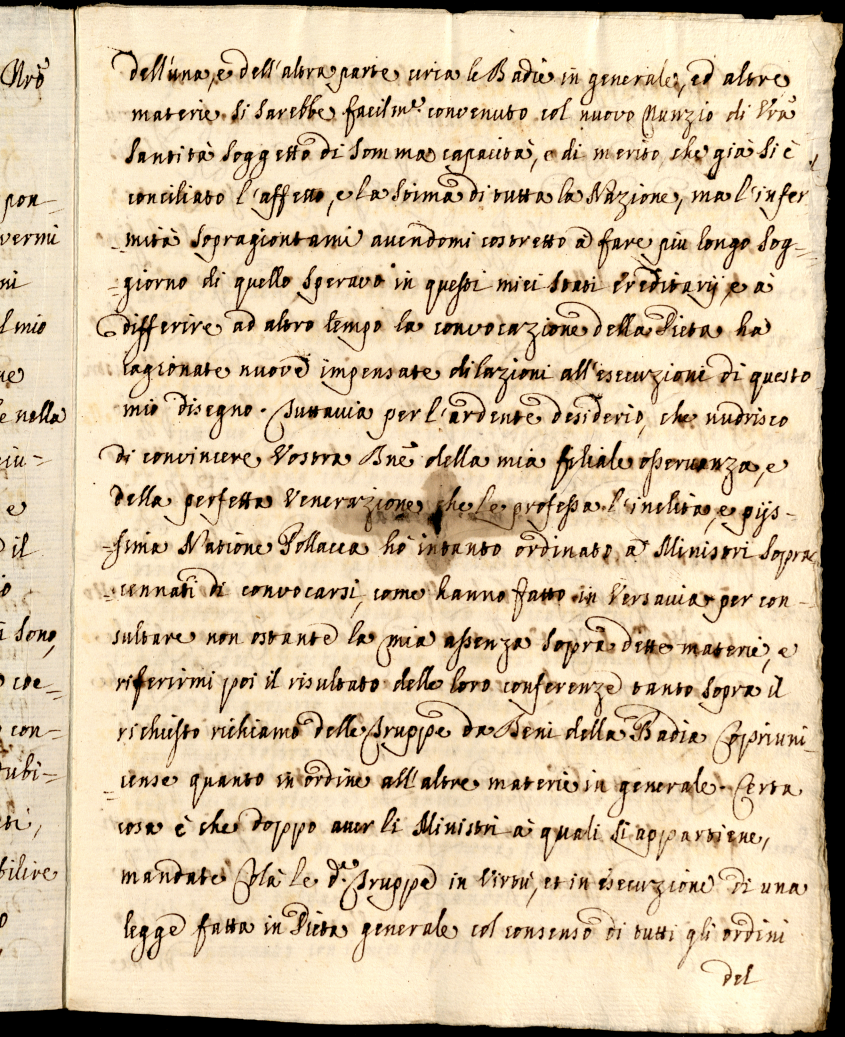 Nrõ
pon-
vermi
ni
l mio
ue
e nella
ciu-
e
il
io
Sono,
coe-
con-
Tubi-
ti,
bilire
o
dell'una, e dell'altra parte circa le Badie in generale, ed altre
materie si sarebbe facilm.e convenuto col nuovo Nunzio di Vrã
Santità Soggetto di Somma capacità, e di merito, che già Si è
conciliato l'affetto, e la Stima di tutta la Nazione, ma l'infer
-mità Sopragiontami avendomi costretto à fare più longo Sog-
-giorno di quello Speravo in questi miei Stati Ereditarij, e à
differire ad altro tempo la convocazione della Dieta ha
cagionate nuove impensate dilazioni all'esecuzioni di questo
mio disegno. Tuttavia per l'ardente desiderio, che nudrisco
di convincere Vostra Bnẽ della mia filiale osservanza, e
della perfetta Venerazione che Le professa l'inclita, e pijs-
-sima Natione Pollacca hò intanto ordinato à Ministri Sopra
-cennati di convocarsi, come hanno fatto in Versavia per con-
sultare non ostante la mia assenza Sopra dette materie, e
riferirmi poi il risultato delle loro conferenze tanto Sopra il
richiesto richiamo delle Truppe da Beni della Badia Copriuni-
-cense quanto in ordine all'altre materie in generale. Certa
cosa è che doppo aver li Ministri à quali Si appartiene,
mandate Colà le d.e Truppe in Virtù, et in esecuzione di una
legge fatta in Dieta generale col consenso di tutti gli ordini
del